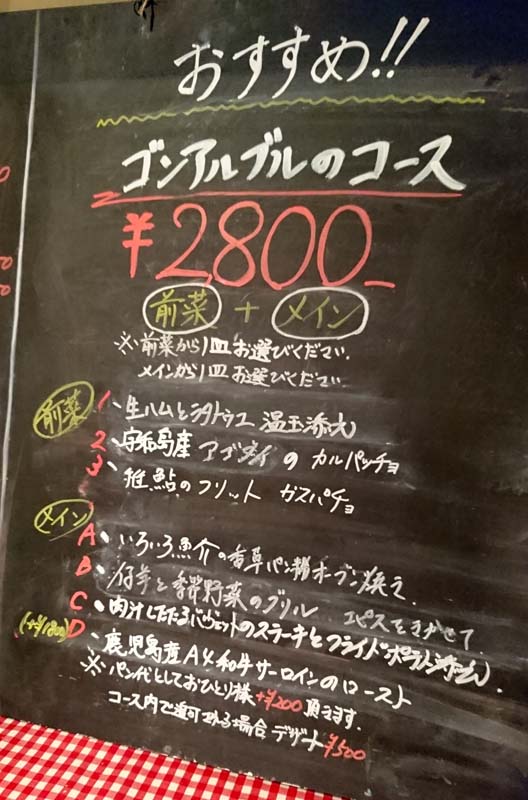 おすすめ!!
ゴンアルブルのコース
¥2,800
前菜 + メイン
※前菜から1皿お選びください.
メインから1皿お選びください
前菜
1、生ハムとラタトゥユ 温玉添え
2、宇和島産 アブダイ の カルパッチョ
3、稚鮎のフリット ガスパチョ
メイン
A、いろいろ魚介の香草パン粉オーブン焼え
B、仔羊と季節野菜のグリル エピスをきかせて
C、肉汁したたるバヴェットのステーキとフライドポテト添え
(+¥1800) D、鹿児島産A4和牛サーロインのロースト
※パン代としておひとり様+¥200頂きます.
コース内で追加される場合 デザート¥500